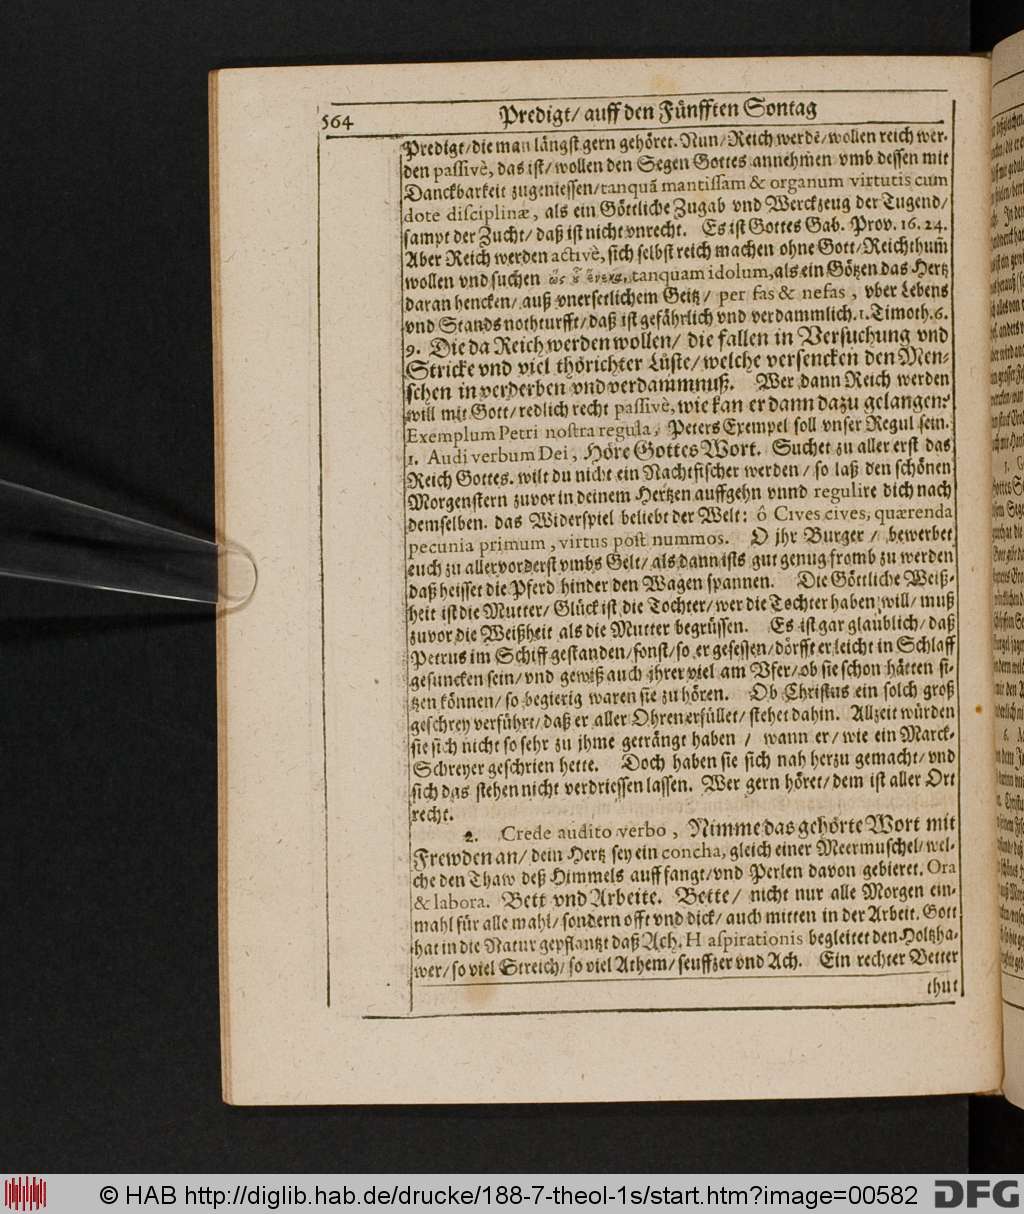 564
Predigt/ auff den Fünfften Sontag
Predigt/ die man längst gern gehöret. Nun/ Reich werdē/ wollen reich wer-
den passivè, das ist/ wollen den Segen Gottes annehmen vmb dessen mit
Danckbarkeit zugeniessen/ tanquā mantissam & organum virtutis cum
dote disciplinæ, als ein Göttliche Zugab vnd Werckzeug der Tugend/
sampt der Zucht/ daß ist nicht vnrecht. Es ist Gottes Gab. Prov. 16. 24.
Aber Reich werden activè, sich selbst reich machen ohne Gott/ Reichthum̃
wollen vnd suchen tanquam idolum, als ein Götzen das Hertz
daran hencken/ auß vnersetlichem Geitz/ per fas & nefas, vber Lebens
vnd Stands nothturfft/ daß ist gefährlich vnd verdammlich. 1. Timoth. 6.
9. Die da Reich werden wollen/ die fallen in Versuchung vnd
Stricke vnd viel thörichter Lüste/ welche versencken den Men-
schen in verderben vnd verdammnuß. Wer dann Reich werden
will mit Gott/ redlich recht passivè, wie kan er dann dazu gelangen?
Exemplum Petri nostra regula, Peters Exempel soll vnser Regul sein.
1. Audi verbum Dei, Höre Gottes Wort. Suchet zu aller erst das
Reich Gottes. wilt du nicht ein Nachtfischer werden/ so laß den schönen
Morgenstern zuvor in deinem Hertzen auffgehn vnnd regulire dich nach
demselben. das Widerspiel beliebt der Welt: ô Cives cives, quærenda
pecunia primum, virtus post nummos. O jhr Burger/ bewerbet
euch zu allervorderst vmbs Gelt/ als dann ists gut genug fromb zu werden
daß heisset die Pferd hinder den Wagen spannen. Die Göttliche Weiß-
heit ist die Mutter/ Glück ist die Tochter/ wer die Tochter haben will/ muß
zuvor die Weißheit als die Mutter begrüssen. Es ist gar glaublich/ daß
Petrus im Schiff gestanden/ sonst/ so er gesessen/ dörfft er leicht in Schlaff
gesuncken sein/ vnd gewiß auch jhrer viel am Vfer/ ob sie schon hätten si-
tzen können/ so begierig waren sie zu hören. Ob Christus ein solch groß
geschrey verführt/ daß er aller Ohren erfüllet/ stehet dahin. Allzeit würden
sie sich nicht so sehr zu jhme geträngt haben/ wann er/ wie ein Marck-
Schreyer geschrien hette. Doch haben sie sich nah herzu gemacht/ vnd
sich das stehen nicht verdriessen lassen. Wer gern höret/ dem ist aller Ort
recht.
2. Crede audito verbo, Nimme das gehörte Wort mit
Frewden an/ dein Hertz sey ein concha, gleich einer Meermuschel/ wel-
che den Thaw deß Himmels auff fangt/ vnd Perlen davon gebieret. Ora
& labora. Bett vnd Arbeite. Bette/ nicht nur alle Morgen ein-
mahl für alle mahl/ sondern offt vnd dick/ auch mitten in der Arbeit. Gott
hat in die Natur gepflantzt daß Ach. H aspirationis begleitet den Holtzha-
wer/ so viel Streich/ so viel Athem/ seuffzer vnd Ach. Ein rechter Better
thut
© HAB http://diglib.hab.de/drucke/188-7-theol-1s/start.htm?image=00582
DFG